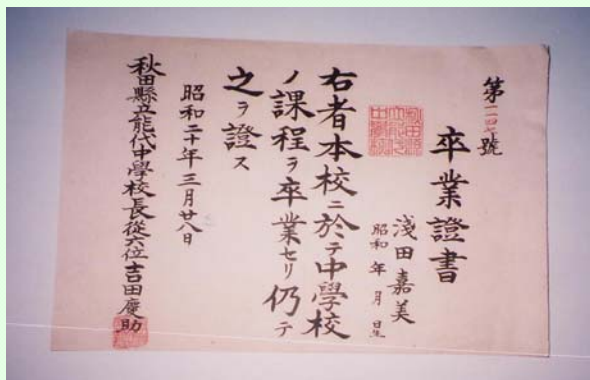 第一一四七號
卒業證書
淺田嘉美
昭和 年 月 日生
右者本校ニ於テ中學校
ノ課程ヲ卒業セリ仍テ
之ヲ證ス
昭和二十年三月廿八日
秋田縣立能代中學校長從六位吉田慶助